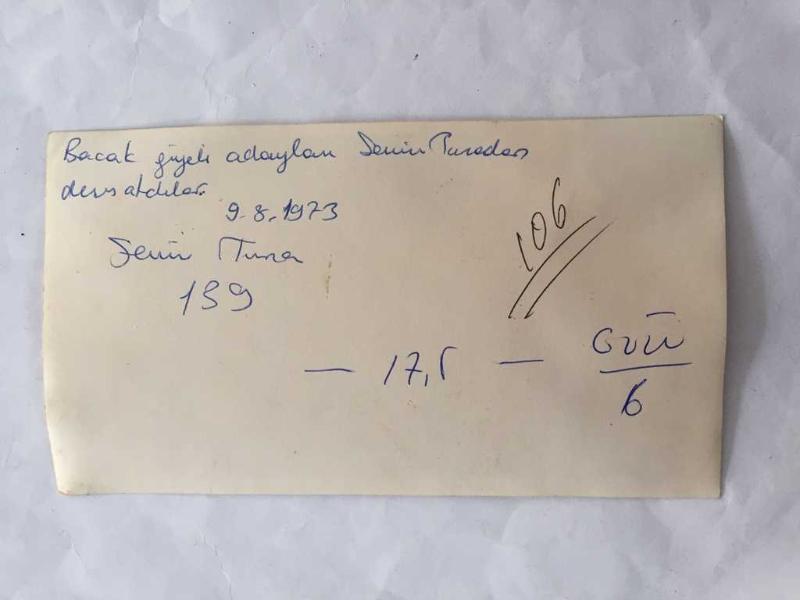 Bacak güzeli adayları Senin Tunadan
ders aldılar.
9.8.1973
Tuna
139
106
— 17,5 —
6